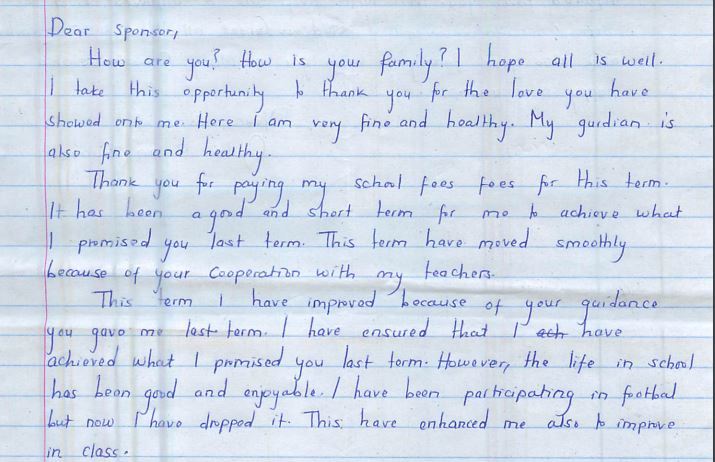 Dear Sponsor,
How are you? How is your family? I hope all is well.
I take this opportunity to thank you for the love you have
showed onto me. Here I am very fine and healthy. My gurdian is
also fine and healthy.
Thank you for paying my school fees fees for this term.
It has been a good and short term for me to achieve what
I promised you last term. This term have moved smoothly
because of your Cooperation with my teachers.
This term I have improved because of your guidance
you gave me last term. I have ensured that I ach have
achieved what I promised you last term. However, the life in school
has been good and enjoyable. I have been participating in footbal
but now I have dropped it. This have enhanced me also to improve
in class.